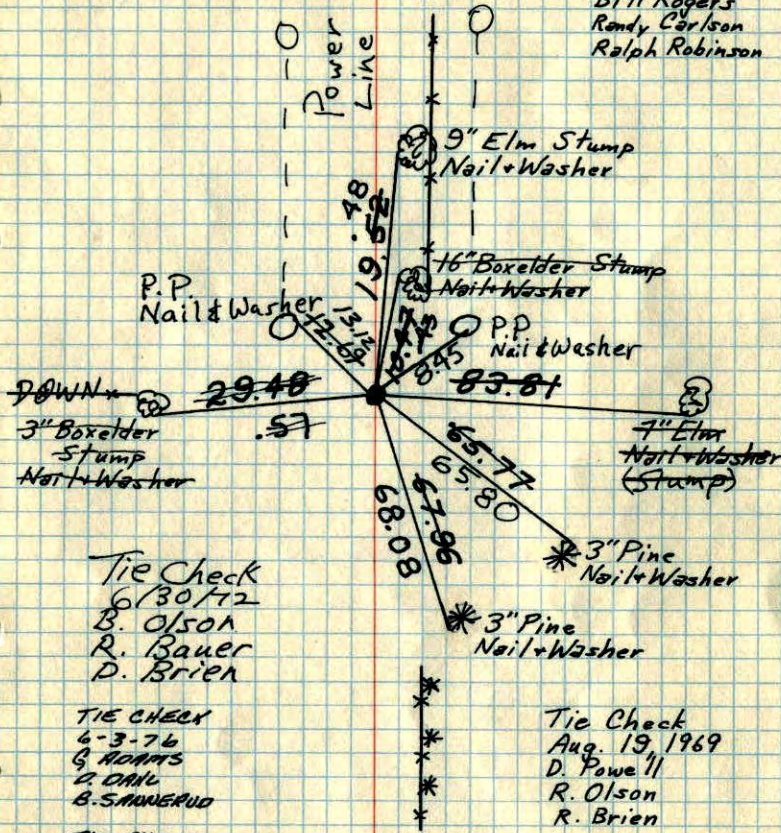 Bill Rogers
Randy Carlson
Ralph Robinson
Power
Line
9" Elm Stump
Nail & Washer
.48
19.52
16" Boxelder Stump
Nail & Washer
P.P.
Nail & Washer
13.12
12.69
P.P
Nail & Washer
8.45
DOWN
29.48
.57
83.81
3" Boxelder
Stump
Nail & Washer
7" Elm
Nail & Washer
(Stump)
65.77
65.80
67.96
68.08
3" Pine
Nail & Washer
3" Pine
Nail & Washer
Tie Check
6/30/72
B. Olson
R. Bauer
D. Brien
TIE CHECK
6-3-76
G ADAMS
D. DAHL
B. SANNERUD
Tie Check
Aug. 19, 1969
D. Powell
R. Olson
R. Brien